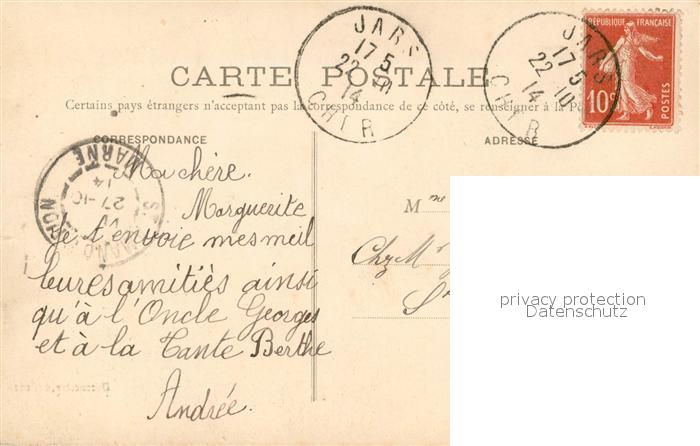 RÉPUBLIQUE FRANÇAISE
10c
POSTES
JARS
17 5
22 10
14
CHER
JARS
17 5
22 10
14
CHER
CARTE POSTALE
Certains pays étrangers n'acceptant pas la correspondance de ce côté, se renseigner à la
CORRESPONDANCE
ADRESSE
MARNE
14
27-10
Ma chère
Marguerite
Je t'envoie mes meil
leures amitiès ainsi
qu'à l'Oncle Georges
et à la Tante Berthe
Andrée
Mme
Chz Mr
privacy protection
Datenschutz